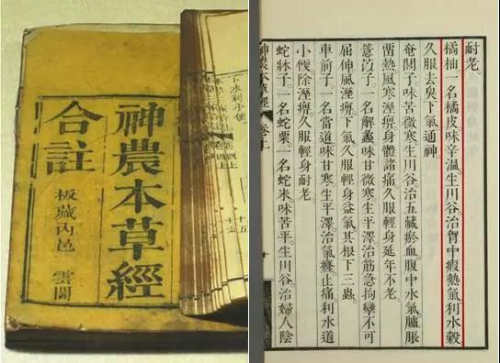 神農本草經
合註
板藏內邑 雲閣
耐老。
橘柚一名橘皮味辛溫生川谷治胷中瘕熱氣利水穀
久服去臭下氣通神
奄閭子味苦微寒生川谷治五藏瘀血腹中水氣臚脹
留熱風寒溼痹身體諸痛久服輕身延年不老
薏苡子一名解蠡味甘微寒生平澤治筋急拘攣不可
屈伸風溼痹下氣久服輕身益氣其根下三蟲
車前子一名當道味甘寒生平澤治氣癃止痛利水道
小便除溼痹久服輕身耐老
蛇牀子一名蛇粟一名蛇米味苦平生川谷治婦人陰
神農本草經 卷上